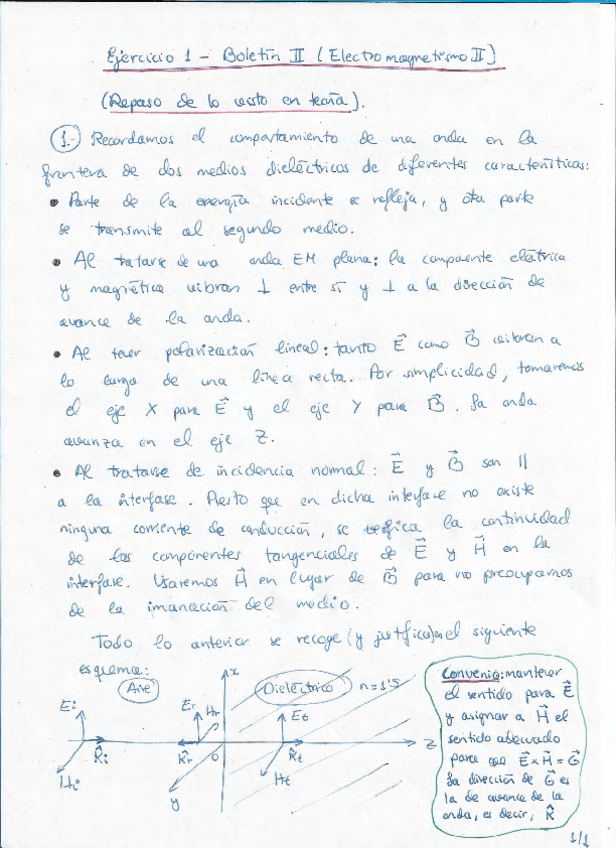 Ejercicio 1 - Boletín II (Electromagnetismo II)
(Repaso de lo visto en teoría).
1.- Recordamos el comportamiento de una onda en la
frontera de dos medios dieléctricos de diferentes características:
• Parte de la energía incidente se refleja, y otra parte
se transmite al segundo medio.
• Al tratarse de una onda EM plana: la componente eléctrica
y magnética vibran ⊥ entre sí y ⊥ a la dirección de
avance de la onda.
• Al tener polarización lineal: tanto E⃗ como B⃗ vibran a
lo largo de una línea recta. Por simplicidad, tomaremos
el eje X para E⃗ y el eje Y para B⃗. La onda
avanza en el eje Z.
• Al tratarse de incidencia normal: E⃗ y B⃗ son ||
a la interfase. Puesto que en dicha interfase no existe
ninguna corriente de conducción, se verifica la continuidad
de las componentes tangenciales de E⃗ y H⃗ en la
interfase. Usaremos H⃗ en lugar de B⃗ para no preocuparnos
de la imanación del medio.
Todo lo anterior se recoge (y justifica) en el siguiente
esquema:
Aire
x
Dieléctrico n=1'5
Ei
Er
Hr
Et
K̂i
K̂r
O
K̂t
Z
Hi
y
Ht
Convenio: mantener
el sentido para E⃗
y asignar a H⃗ el
sentido adecuado
para que E⃗ x H⃗ = G⃗
La dirección de G⃗ es
la de avance de la
onda, es decir, K̂
1/1